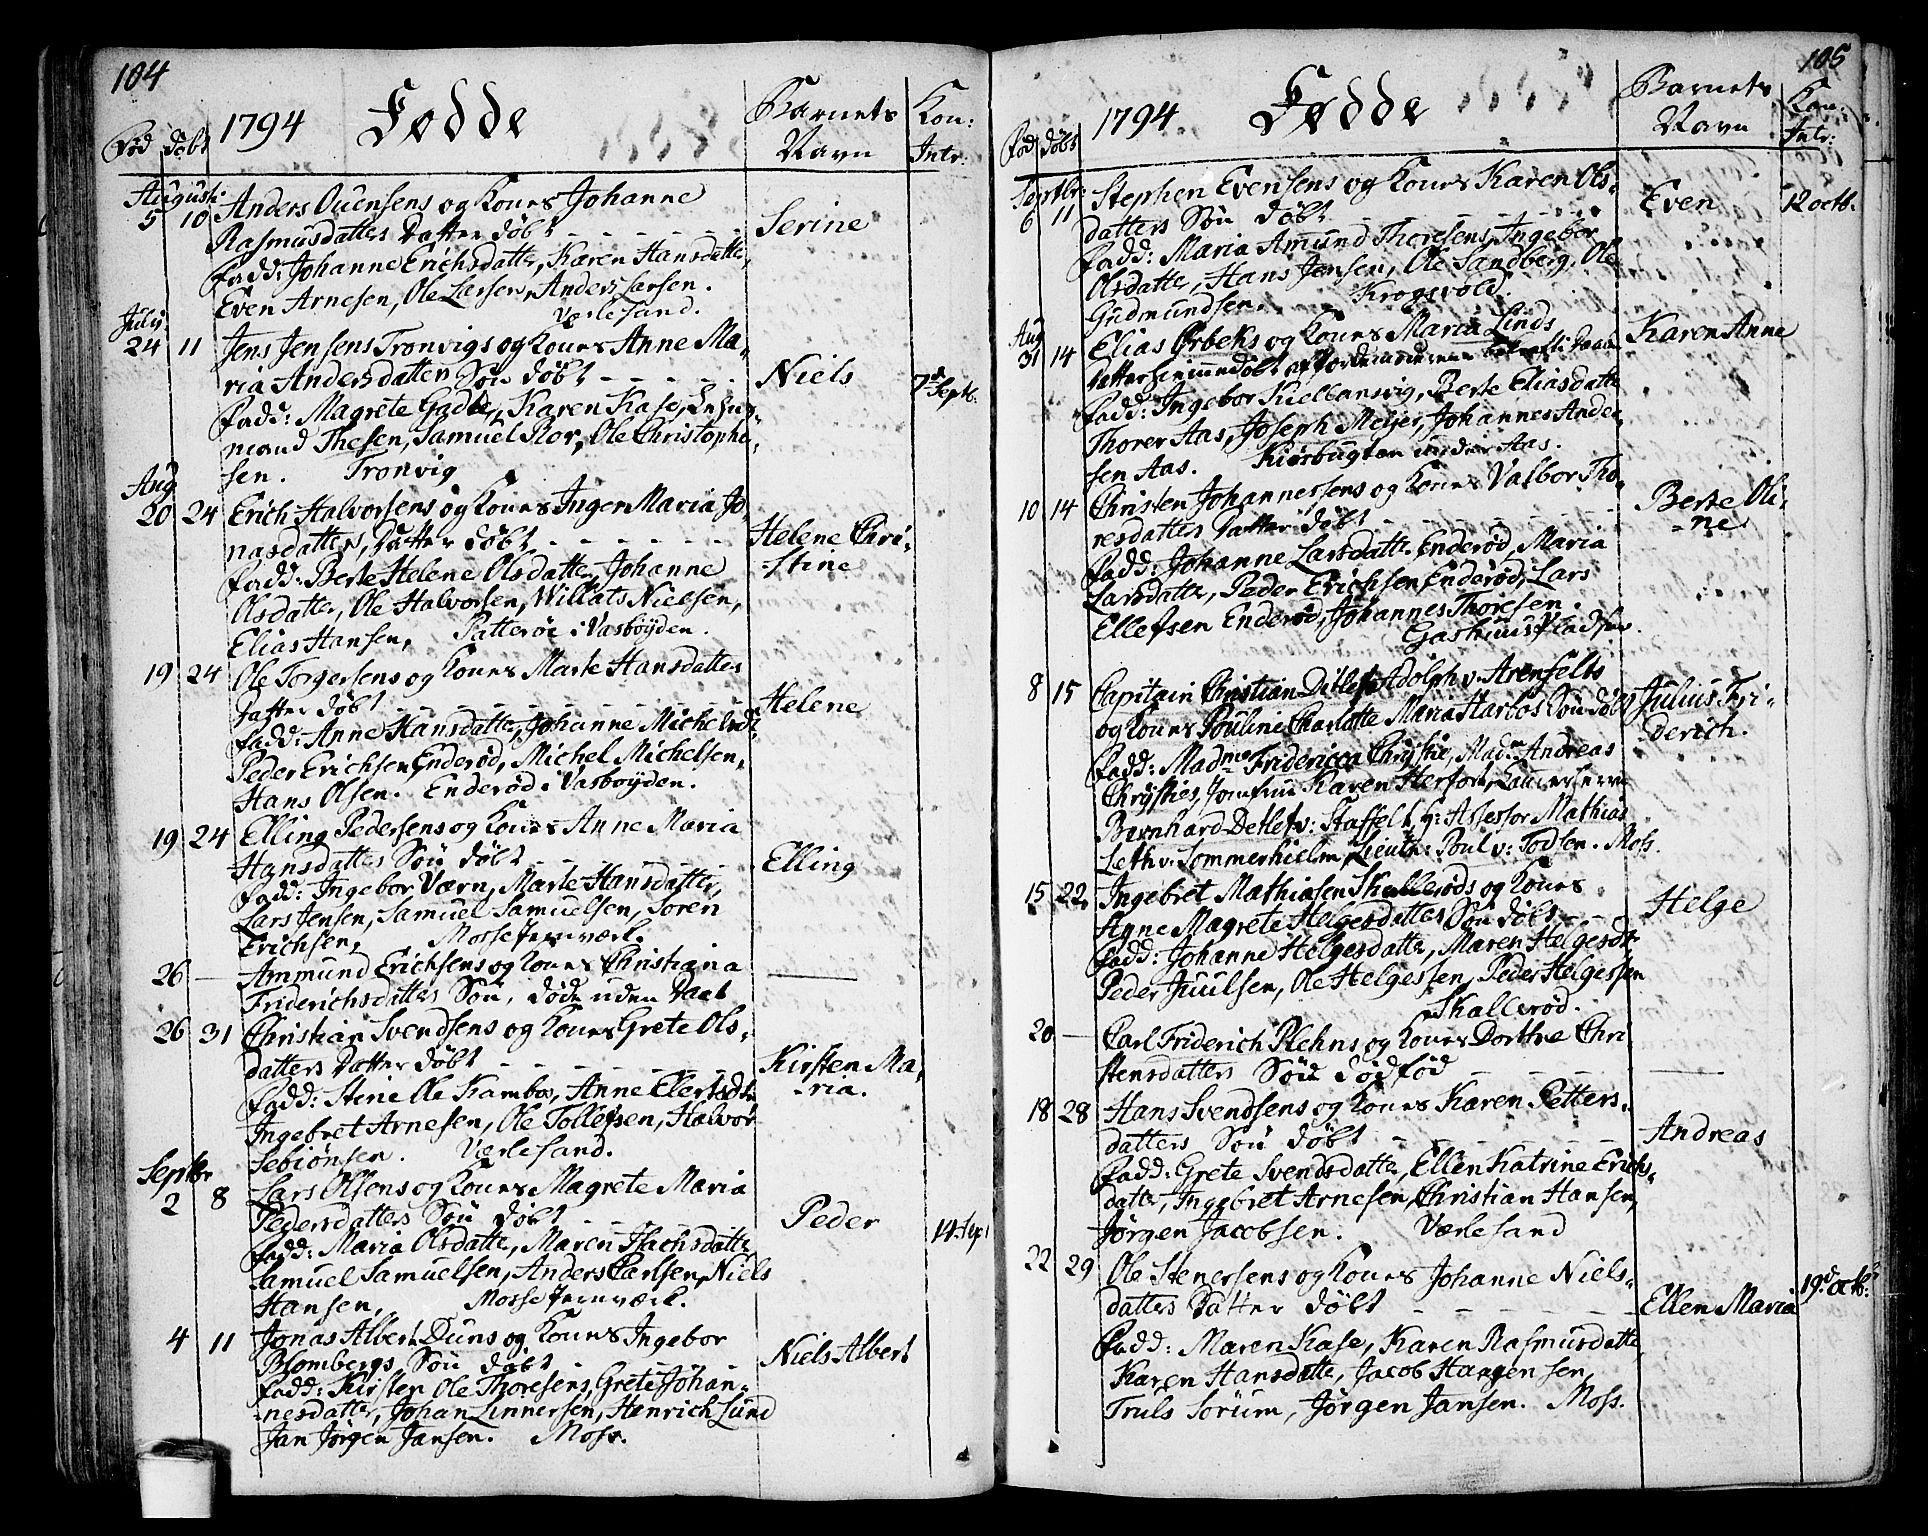 104
1794 Fødde
Barnets Navn
Kon: Intr.
Fød Døbt
Augusti
5 10 Anders Ouensens og Kones Johanne
Rasmusdatters Datter døbt Serine
Fadd: Johanne Erichsdatter, Karen Hansdatter,
Even Arnesen, Ole Larsen, Anders Larsen.
Værlesand.
July
24 11 Jens Jensens Tronvigs og Kones Anne Ma-
ria Andersdatters Søn døbt Niels 7d Septb.
Fadd: Magrete Gade, Karen Kase,
mand Thesen, Samuel Ror, Ole Christophe-
sen. Tronvig
Aug
20 24 Erich Halvorsens og Kones Inger Maria Jo
nasdatters, Datter døbt Helene Chri-
-stine
Fadd: Berte Helene Olsdatter, Johanne
Olsdatter, Ole Halvorsen, Willats Nielsen,
Elias Hansen, Patterøe i Vasbøyden.
19 24 Ole Torgersens og Kones Marte Hansdatters
Datter døbt Helene
Fadd: Anne Hansdatter, Johanne Michelsdt.
Peder Erichsen Enderød, Michel Michelsen,
Hans Olsen. Enderød i Vasbøyden.
19 24 Elling Pedersens og Kones Anne Maria
Hansdatters Søn døbt Elling
Fadd: Ingebor Værn, Marte Hansdatter,
Lars Jensen, Samuel Samuelsen, Søren
Erichsen, Mosse Jernværk.
26 — Ammund Erichsens og Kones Christiana
Friderichsdatters Søn, døde uden Daab
26 31 Christian Svendsens og Kones Grete Ols-
datters Datter døbt Kirsten Ma-
-ria.
Fadd: Stinelle Kambo, Anne Elertsdtr
Ingebret Arnesen, Ole Tollefsen, Halvor
Sebiønsen. Værlesand.
Septbr
2 8 Lars Olsens og Kones Magrete Maria
Pedersdatters Søn døbt Peder 14. Sept
Fadd: Maria Olsdatter, Maren Isachsdatter
Samuel Samuelsen, Anders Carlsen, Niels
Hansen, Mosse Jernværk.
4 11 Jonas Albert Duns og Kones Ingebor
Blombergs Søn døbt Niels Albert
Fadd: Kirsten Ole Thoresens, Grete Johan-
-nesdatter, Johan Linnersen, Henrich Lund
Jan Jørgen Jansen. Moss.
105
1794 Fødde
Barnets Navn
Kon: Intr:
Fød Døbt
Septbr:
6 11 Stephen Evensens og Kones Karen Ols-
datters Søn døbt Even 12 octb.
Fadd: Maria Amund Thoresens, Ingebor
Olsdatter, Hans Jensen, Ole Sandberg, Ole
Gudmundsen. Krogsvold.
Aug
31 14 Elias Ørbeks og Kones Maria Linds Karen Anne
Datter hiemmedøbt af Jordemoderen Daab
Fadd: Ingebor Kiellansvig, Berte Eliasdatter
Thorer Aas, Joseph Meijer, Johannes Ander-
sen Aas. Kiøsbugten under Aas.
10 14 Christen Johannessens og Kones Valbor Tho-
resdatters Datter døbt Berte Oli-
-ne
Fadd: Johanne Larsdatter Enderød, Maria
Larsdatter, Peder Erichsen Enderød, Lars
Ellefsen Enderød, Johannes Thoresen.
8 15 Capitain Christian Ditlef Adolph v. Arenfelts
og Kones Pouline Charlotte Maria Harbos Søn døbt Julius Fri-
-derich.
Fadd: Madme Fridericca Chrystie, Madm Andreas
Chrysties, Jomfru Karen Herfort,
Bernhard Detlef v: Staffelt, H: Assessor Mathias
Leth v. Sommerhielm, Lieutn: Poul v: Todsen. Moss.
15 22 Ingebret Mathiasen Skallerøds og Kones
Agne Magrete Helgesdatters Søn døbt Helge
Fadd: Johanne Helgesdatter, Maren Helgesdtr
Peder Juulsen, Ole Helgessen, Peder Helgessen
Skallerød.
20 — Carl Friderich Plehns og Kones Dorthe Chri
stensdatters Søn dødfød
18 28 Hans Svendsens og Kones Karen Petters-
datters Søn døbt Andreas
Fadd: Grete Svendsdatter, Ellen Katrine Erichs-
datter, Ingebret Arnesen, Christian Hansen,
Jørgen Jacobsen. Værlesand
22 29 Ole Stenersens og Kones Johanne Niels-
datters Datter døbt Ellen Maria 19d octb:
Fadd: Maren Kase, Karen Rasmusdatter
Karen Hansdatter, Jacob Haagensen,
Truls Sørum, Jørgen Jansen. Moss.